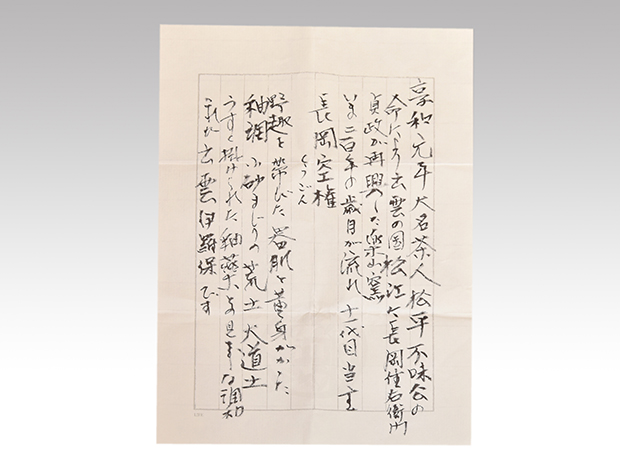 享和元年大名茶人松平不味公の
命により出雲の国松江で長岡住右衛門
貞政が再興した楽山窯
いま二百年の歳月が流れ 十一代目当主
長岡空権
くうごん
野趣を帯びた器肌と黄身がかった
釉調 小砂まじりの荒土大道土
うすく掛けられた釉薬との見事な調和
これが出雲伊羅保です